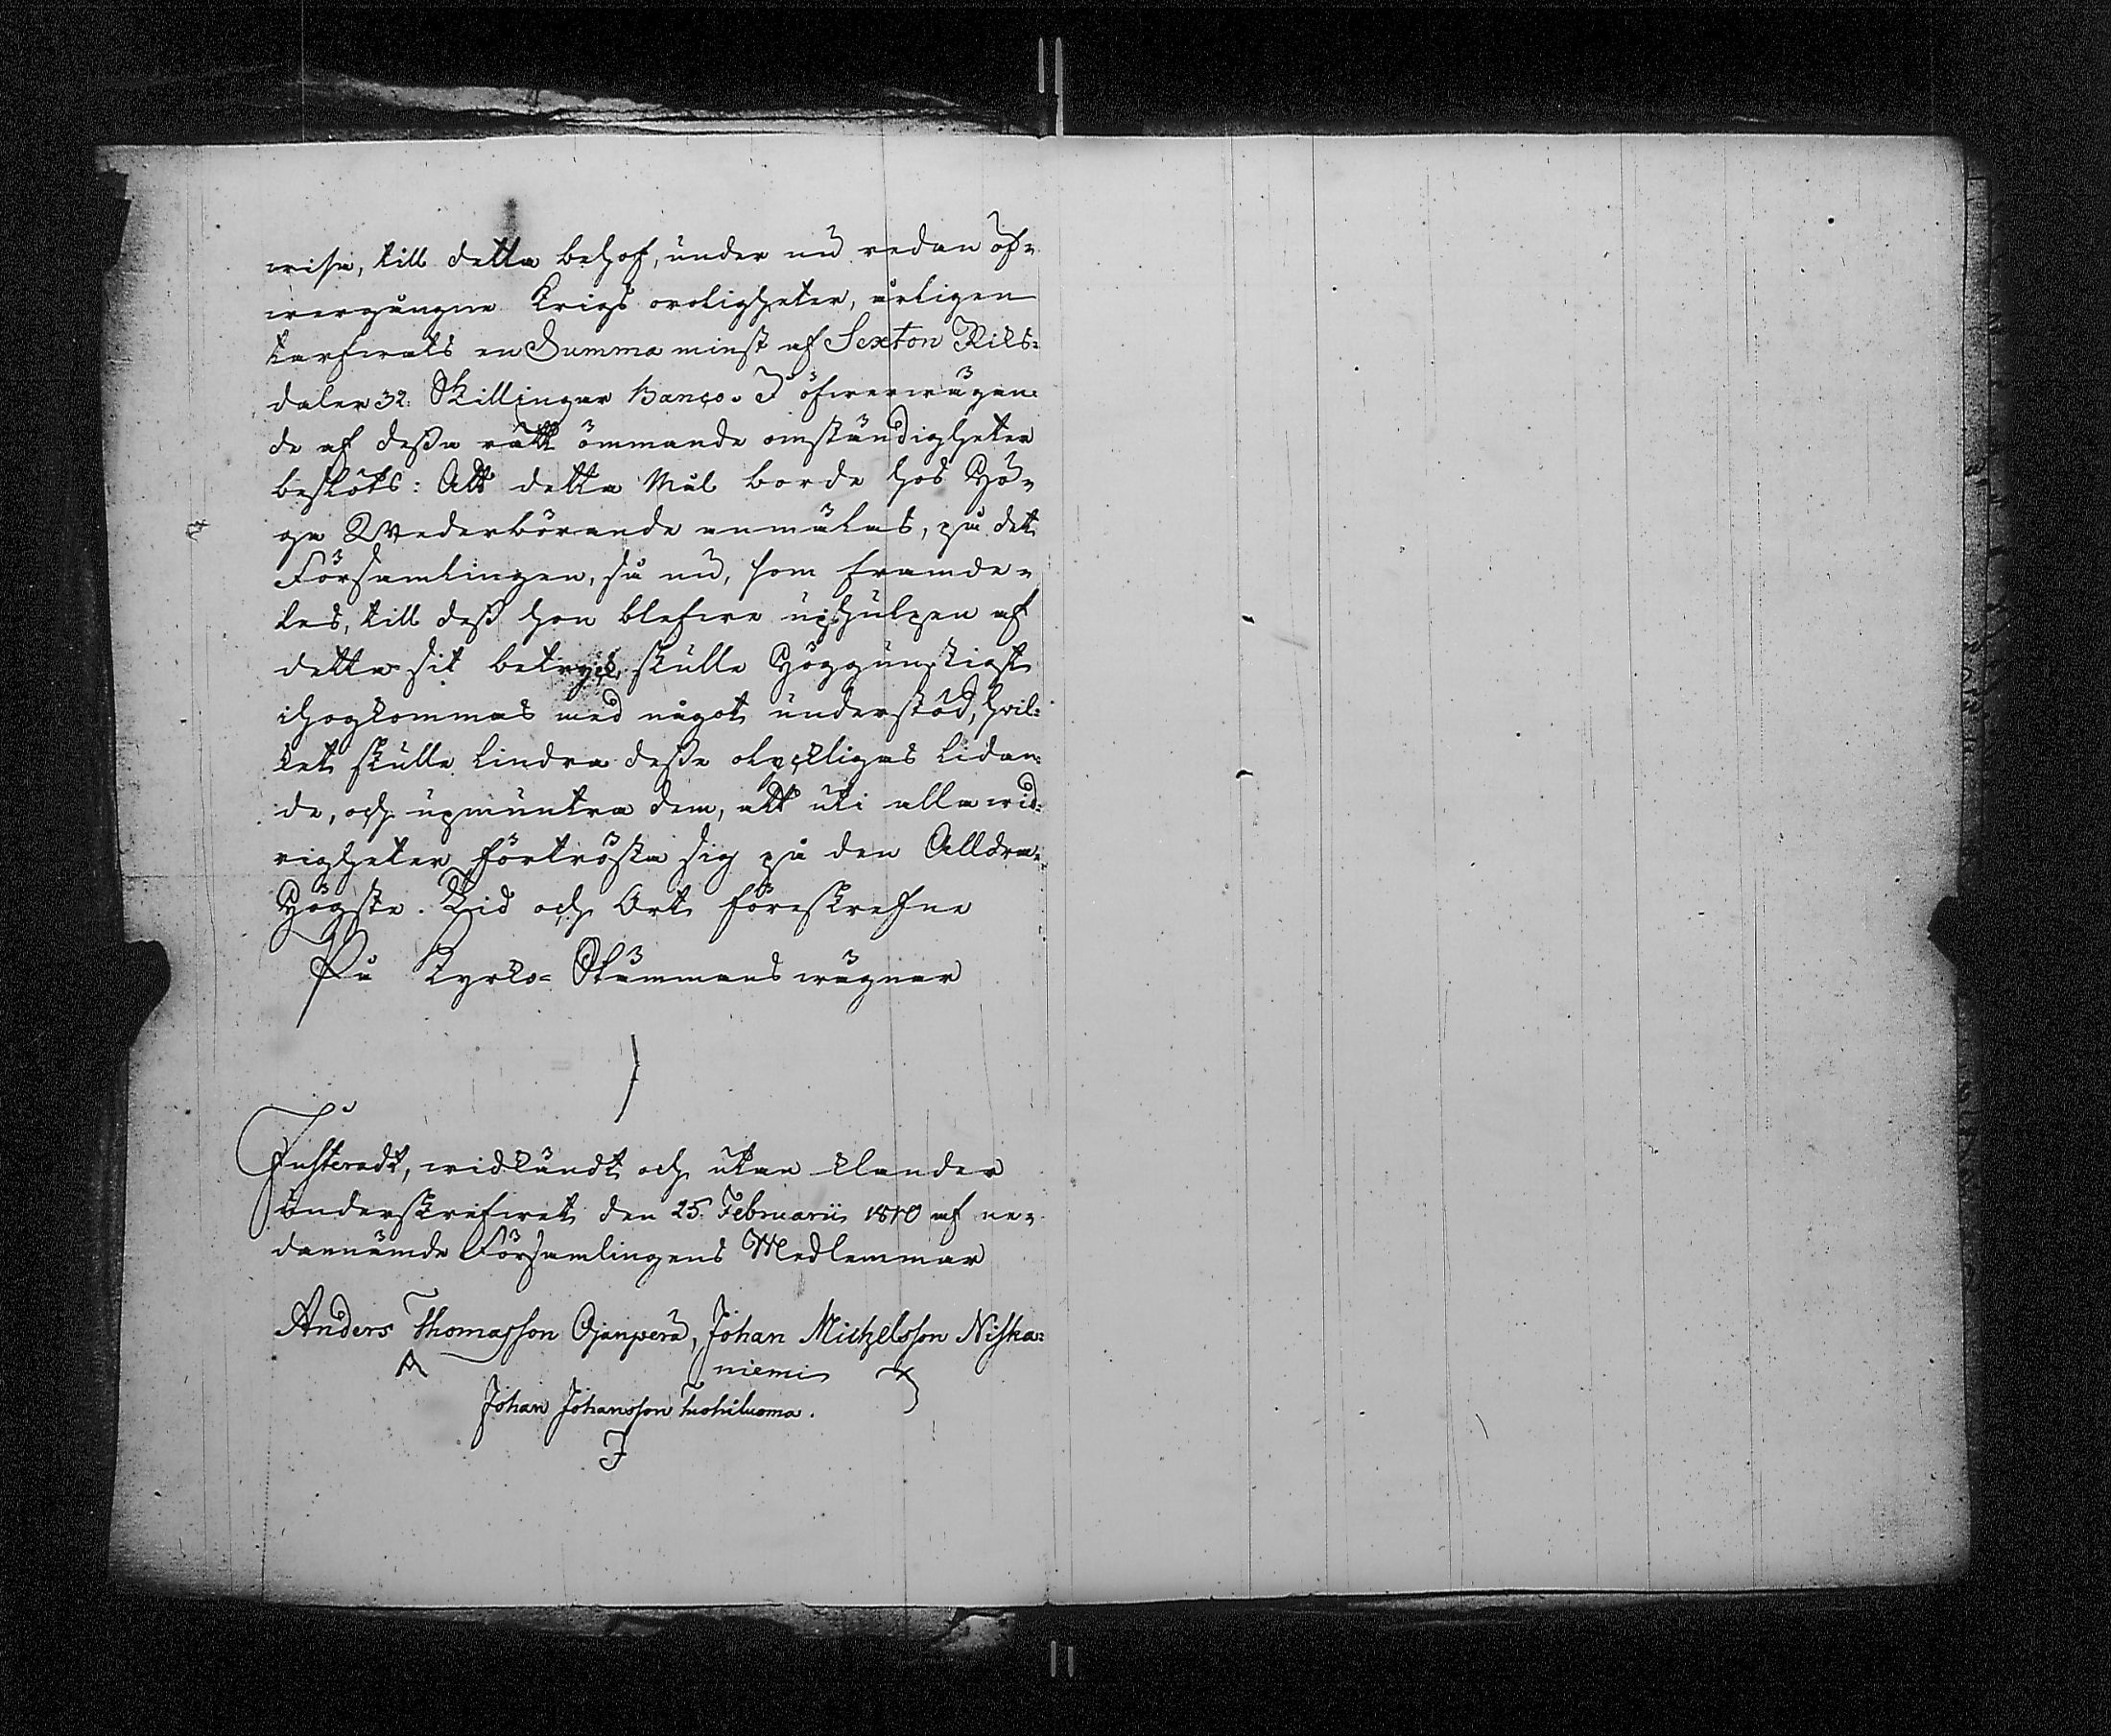 wisa, till detta behof, under nu redan öf-
wergångne Krigs oroligheter, årligen
tarfwats en Summa minst af Sexton Riks-
daler 32. Skillingar Banco. I öfwerwägan-
de af dessa rätt ömmande omständigheter
beslöts: Att detta Mål borde hos Hö-
ga Wederbörande anmälas, på det
Församlingen, så nu, som framde-
les, till dess hon blefwe uphulpen af
detta sit betryck, skulle Höggunstigst
ihogkommas med något understöd, hwil-
ket skulle lindra desse olyckligas lidan-
de, och upmuntra dem, att uti alla wid-
righeter förtrösta sig på den Alldra-
Högste. Tid och Ort föreskrefne
På Kyrko-Stämmans wägnar
Justeradt, widkändt och utan klander
underskrefwet den 25. Februarii 1810 af ne-
dannämde Församlingens Medlemmar
Anders Thomasson Ojanperä, Johan Michelsson Niska-
A niemi
Johan Johansson Tuohiluoma.
J